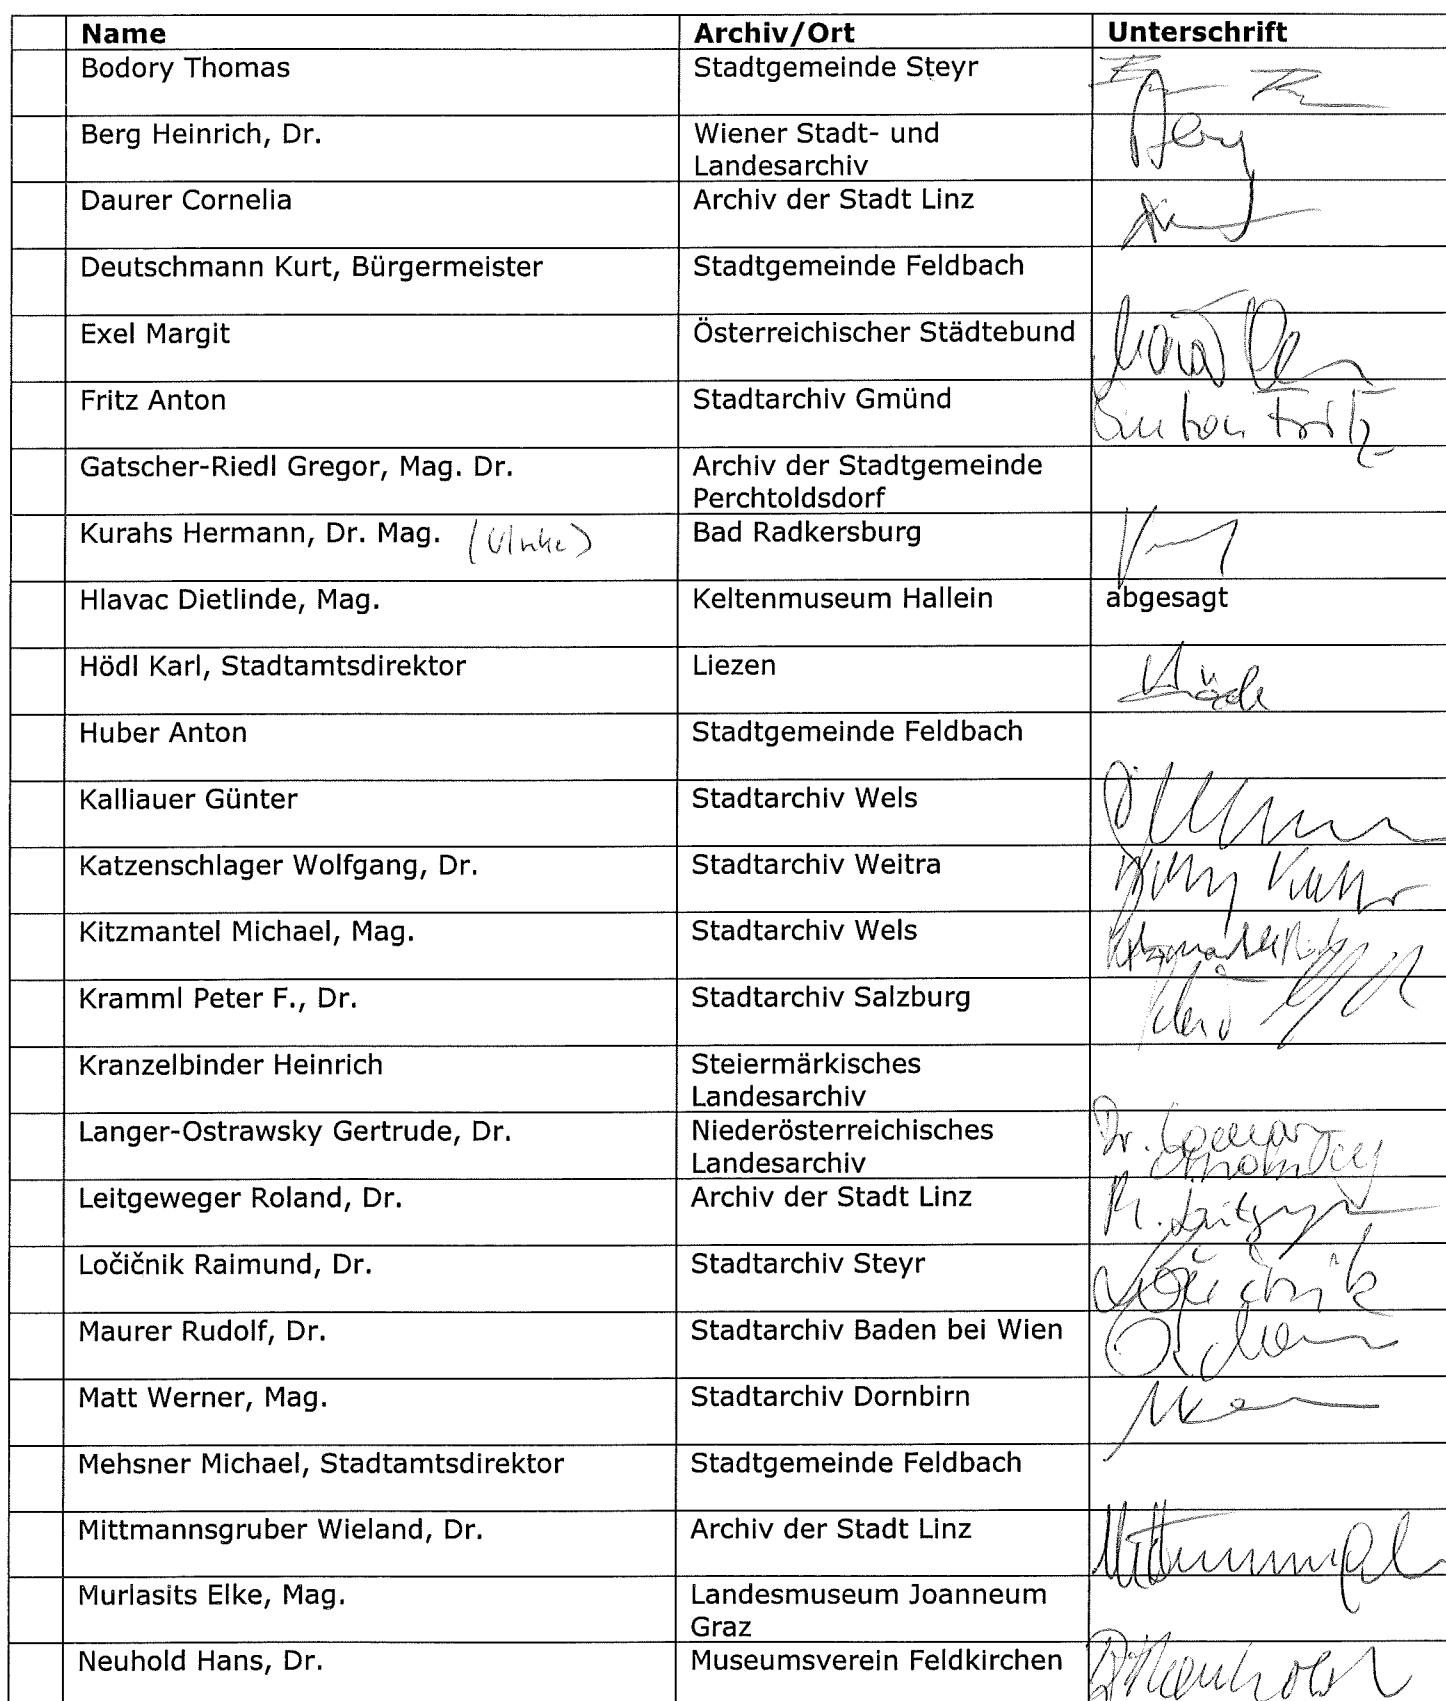 Name Archiv/Ort Unterschrift
Bodory Thomas Stadtgemeinde Steyr
Berg Heinrich, Dr. Wiener Stadt- und
Landesarchiv
Daurer Cornelia Archiv der Stadt Linz
Deutschmann Kurt, Bürgermeister Stadtgemeinde Feldbach
Exel Margit Österreichischer Städtebund
Fritz Anton Stadtarchiv Gmünd Anton Fritz
Gatscher-Riedl Gregor, Mag. Dr. Archiv der Stadtgemeinde
Perchtoldsdorf
Kurahs Hermann, Dr. Mag. (Ulrike) Bad Radkersburg
Hlavac Dietlinde, Mag. Keltenmuseum Hallein abgesagt
Hödl Karl, Stadtamtsdirektor Liezen
Huber Anton Stadtgemeinde Feldbach
Kalliauer Günter Stadtarchiv Wels
Katzenschlager Wolfgang, Dr. Stadtarchiv Weitra
Kitzmantel Michael, Mag. Stadtarchiv Wels
Kramml Peter F., Dr. Stadtarchiv Salzburg
Kranzelbinder Heinrich Steiermärkisches
Landesarchiv
Langer-Ostrawsky Gertrude, Dr. Niederösterreichisches
Landesarchiv
Leitgeweger Roland, Dr. Archiv der Stadt Linz
Ločičnik Raimund, Dr. Stadtarchiv Steyr Ločičnik
Maurer Rudolf, Dr. Stadtarchiv Baden bei Wien
Matt Werner, Mag. Stadtarchiv Dornbirn
Mehsner Michael, Stadtamtsdirektor Stadtgemeinde Feldbach
Mittmannsgruber Wieland, Dr. Archiv der Stadt Linz
Murlasits Elke, Mag. Landesmuseum Joanneum
Graz
Neuhold Hans, Dr. Museumsverein Feldkirchen